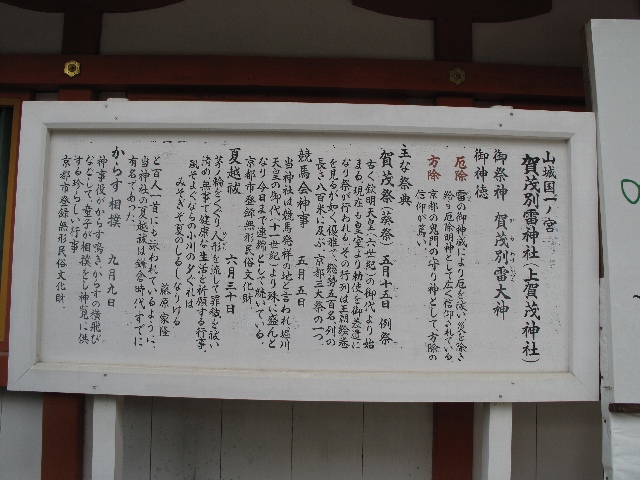 山城国一ノ宮
賀茂別雷神社(上賀茂神社)
御祭神 賀茂別雷大神
御神徳
厄除 雷の御神威により厄を祓い災を除き
給う厄除明神として広く信仰されている
方除 京都の鬼門の守り神として方除の
信仰が篤い。
主な祭典
賀茂祭(葵祭) 五月十五日 例祭
古く欽明天皇(六世紀)の御代より始
まる。現在も皇室より勅使を御参遣に
なり祭が行われる。その行列は王朝絵巻
を見るが如く優雅で、総勢五百名列の
長さ八百米に及ぶ、京都三大祭の一つ。
競馬会神事 五月五日
当神社は競馬発祥の地と言われ堀川
天皇の御代(十一世紀)より殊に盛んと
なり今日まで連綿として続いている。
京都市登録無形民俗文化財。
夏越祓 六月三十日
茅ノ輪をくぐり人形を流して罪穢を祓い
清め無事で健康な生活を祈願する行事、
風そよぐならの小川の夕ぐれは
みそぎぞ夏のしるしなりける
藤原家隆
と百人一首にも詠われているように、
当神社の夏越祓は鎌倉時代すでに
有名であった。
からす相撲 九月九日
神事後がからす鳴き、からすの横飛び
などをし、童子が相撲をとし神覧に供
する珍らしい行事
京都市登録無形民俗文化財